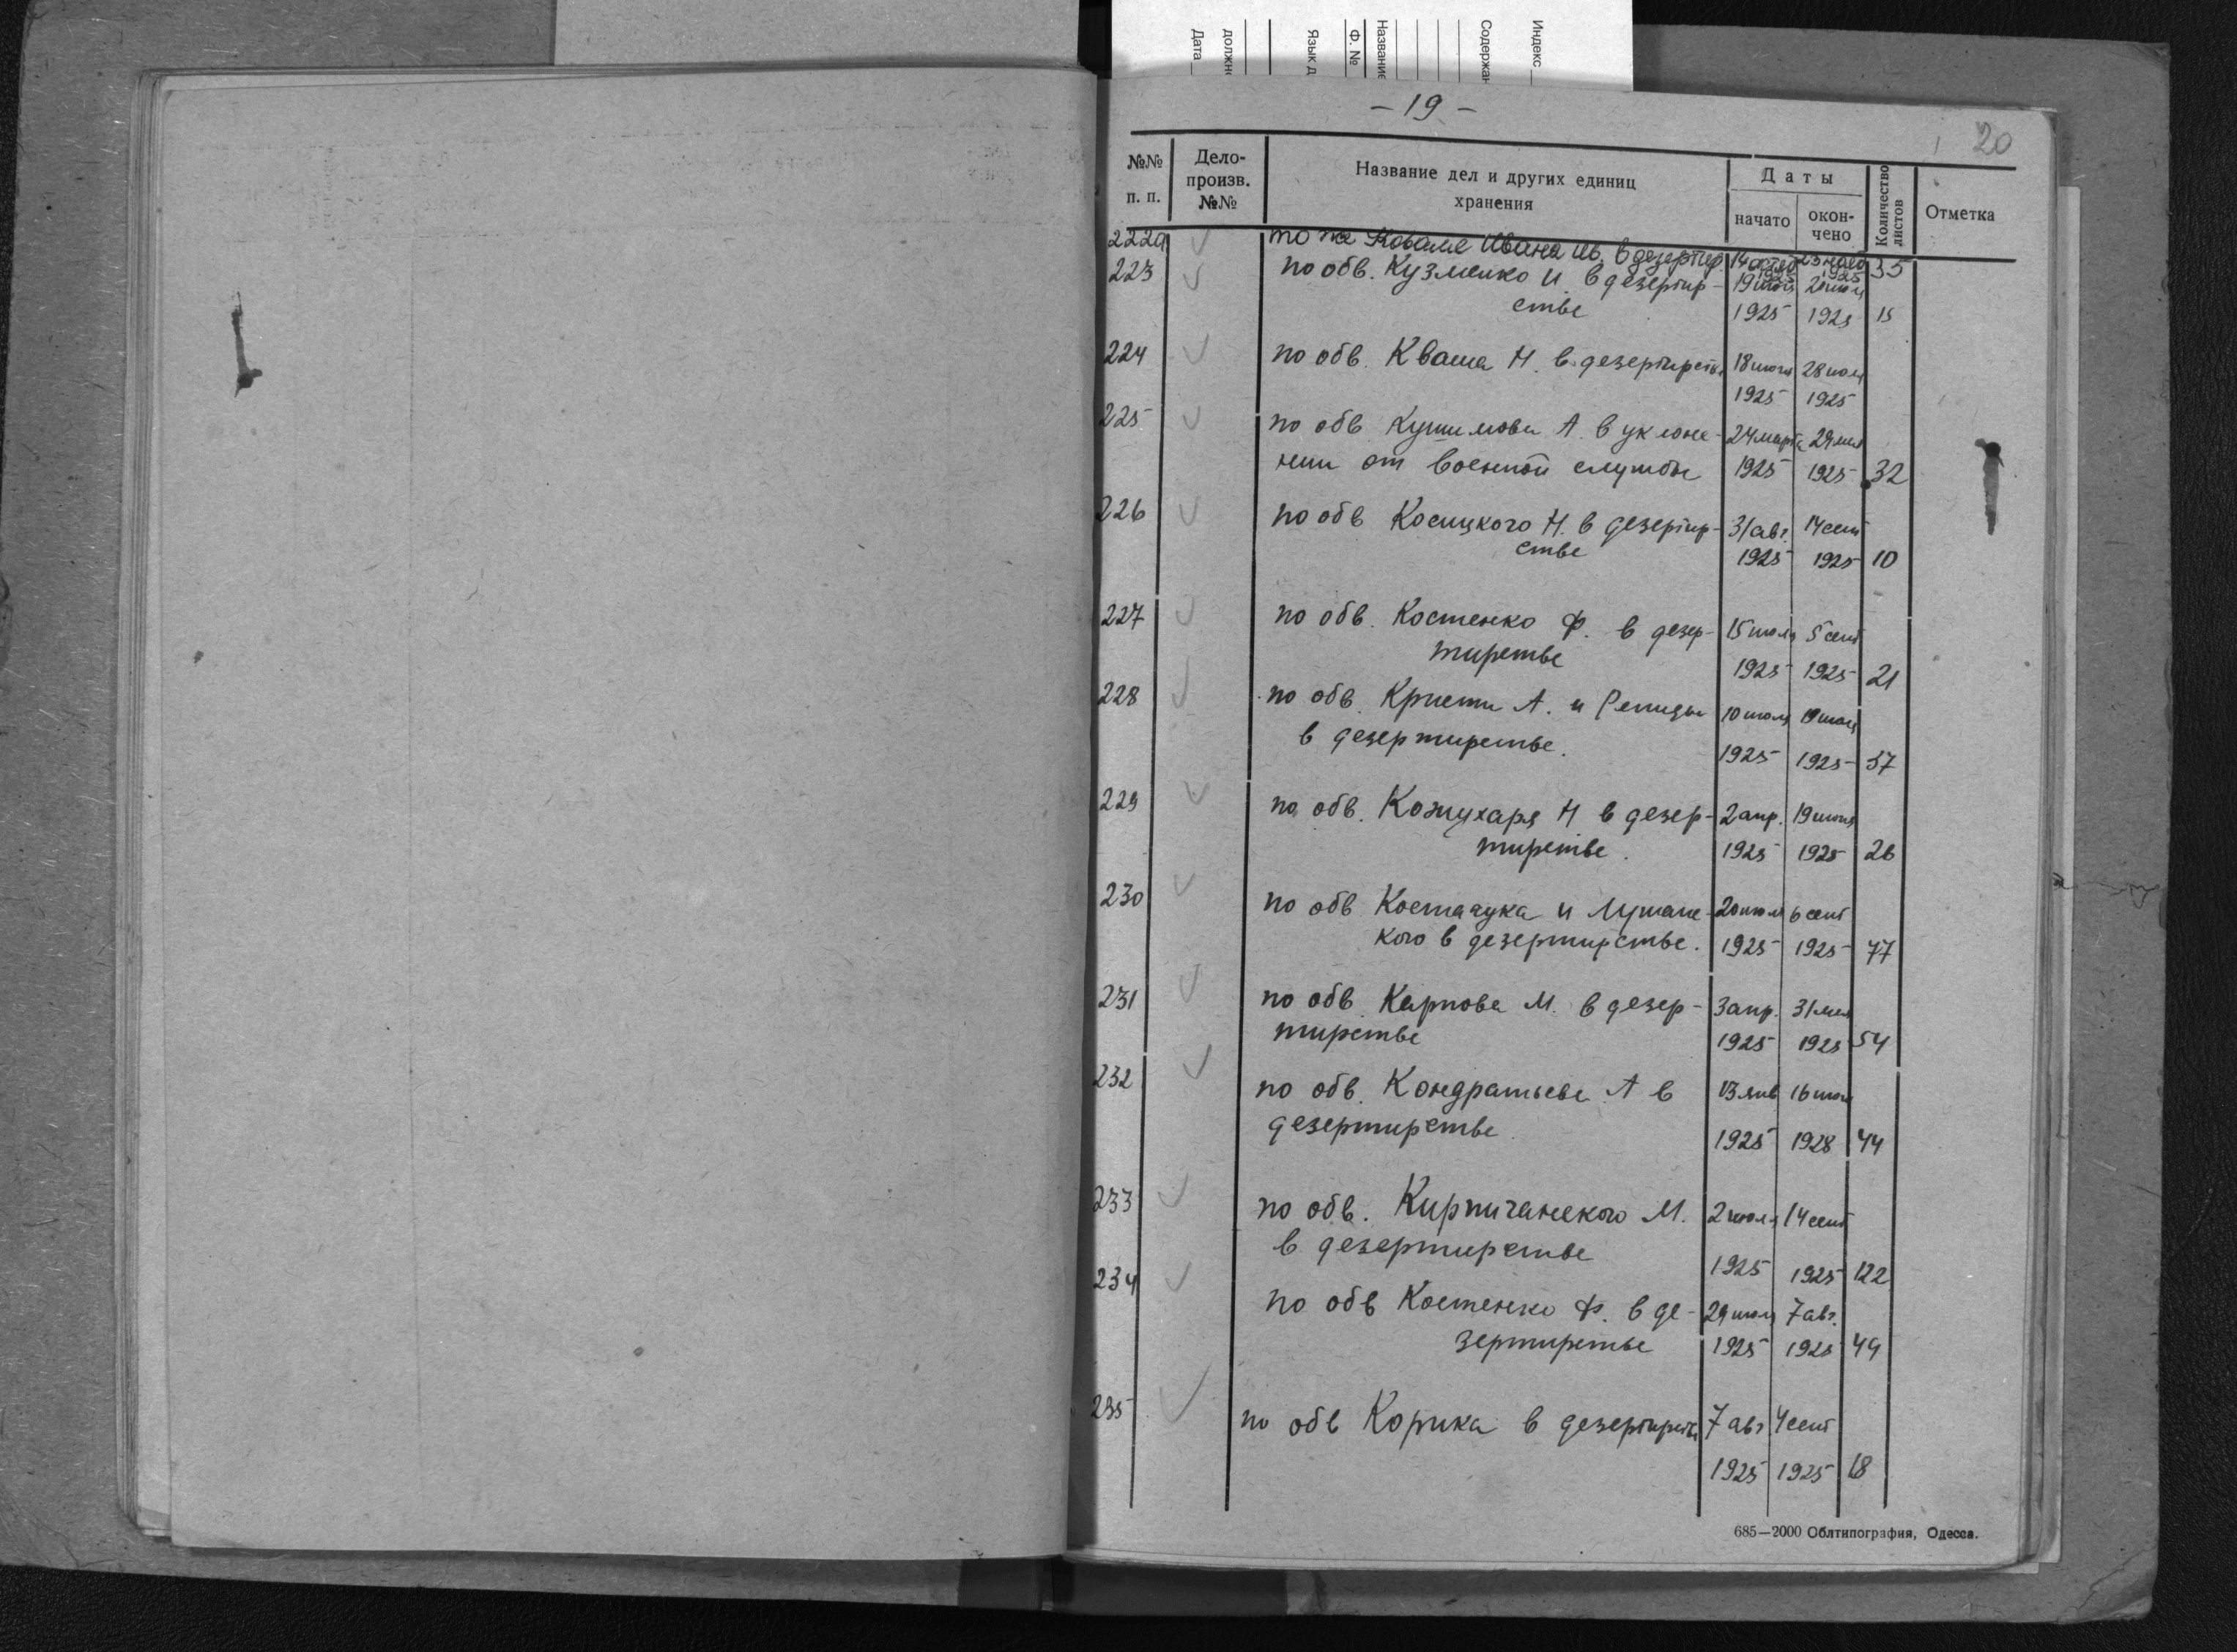 Индекс
Содержан
Название
Ф. №
Язык д
должн
Дата
– 19 –
20
№№ п. п.
Дело-произв. №№
Название дел и других единиц хранения
Даты
начато
окончено
Количество листов
Отметка
222а то же Коваля Ивана Ив. в дезертир. 1925 1925 35
223 по обв. Кузменко И. в дезертир- 19 20
стве 1925 1925 15
224 по обв. Кваша Н. в дезертирстве 18 июля 28 июля
1925 1925
225 по обв Кушимова А. в уклоне- 24 марта 29 мая
нии от военной службы 1925 1925 32
226 по обв Косицкого Н. в дезертир- 31 авг. 14 сент
стве 1925 1925 10
227 по обв. Костенко Ф. в дезер- 15 июля 5 сент
тирстве 1925 1925 21
228 по обв. Кристи А. и 10 июля 19 июля
в дезертирстве. 1925 1925 57
229 по обв. Кожухаря Н в дезер- 2 апр. 19 июня
тирстве. 1925 1925 26
230 по обв Костачука и Лушанс- 20 июля 6 сент
кого в дезертирстве. 1925 1925 77
231 по обв. Карпова М. в дезер- 3 апр. 31 мая
тирстве 1925 1925 54
232 по обв. Кондратьева А в 13 янв 16
дезертирстве 1925 1928 44
233 по обв. Кирпичанского М. 2 июля 14 сент
в дезертирстве 1925 1925 122
234 по обв Костенко Ф. в де- 29 июля 7 авг.
зертирстве 1925 1925 49
235 по обв Корика в дезертирстве 7 авг 4 сент
1925 1925 18
685—2000 Облтипография, Одесса.